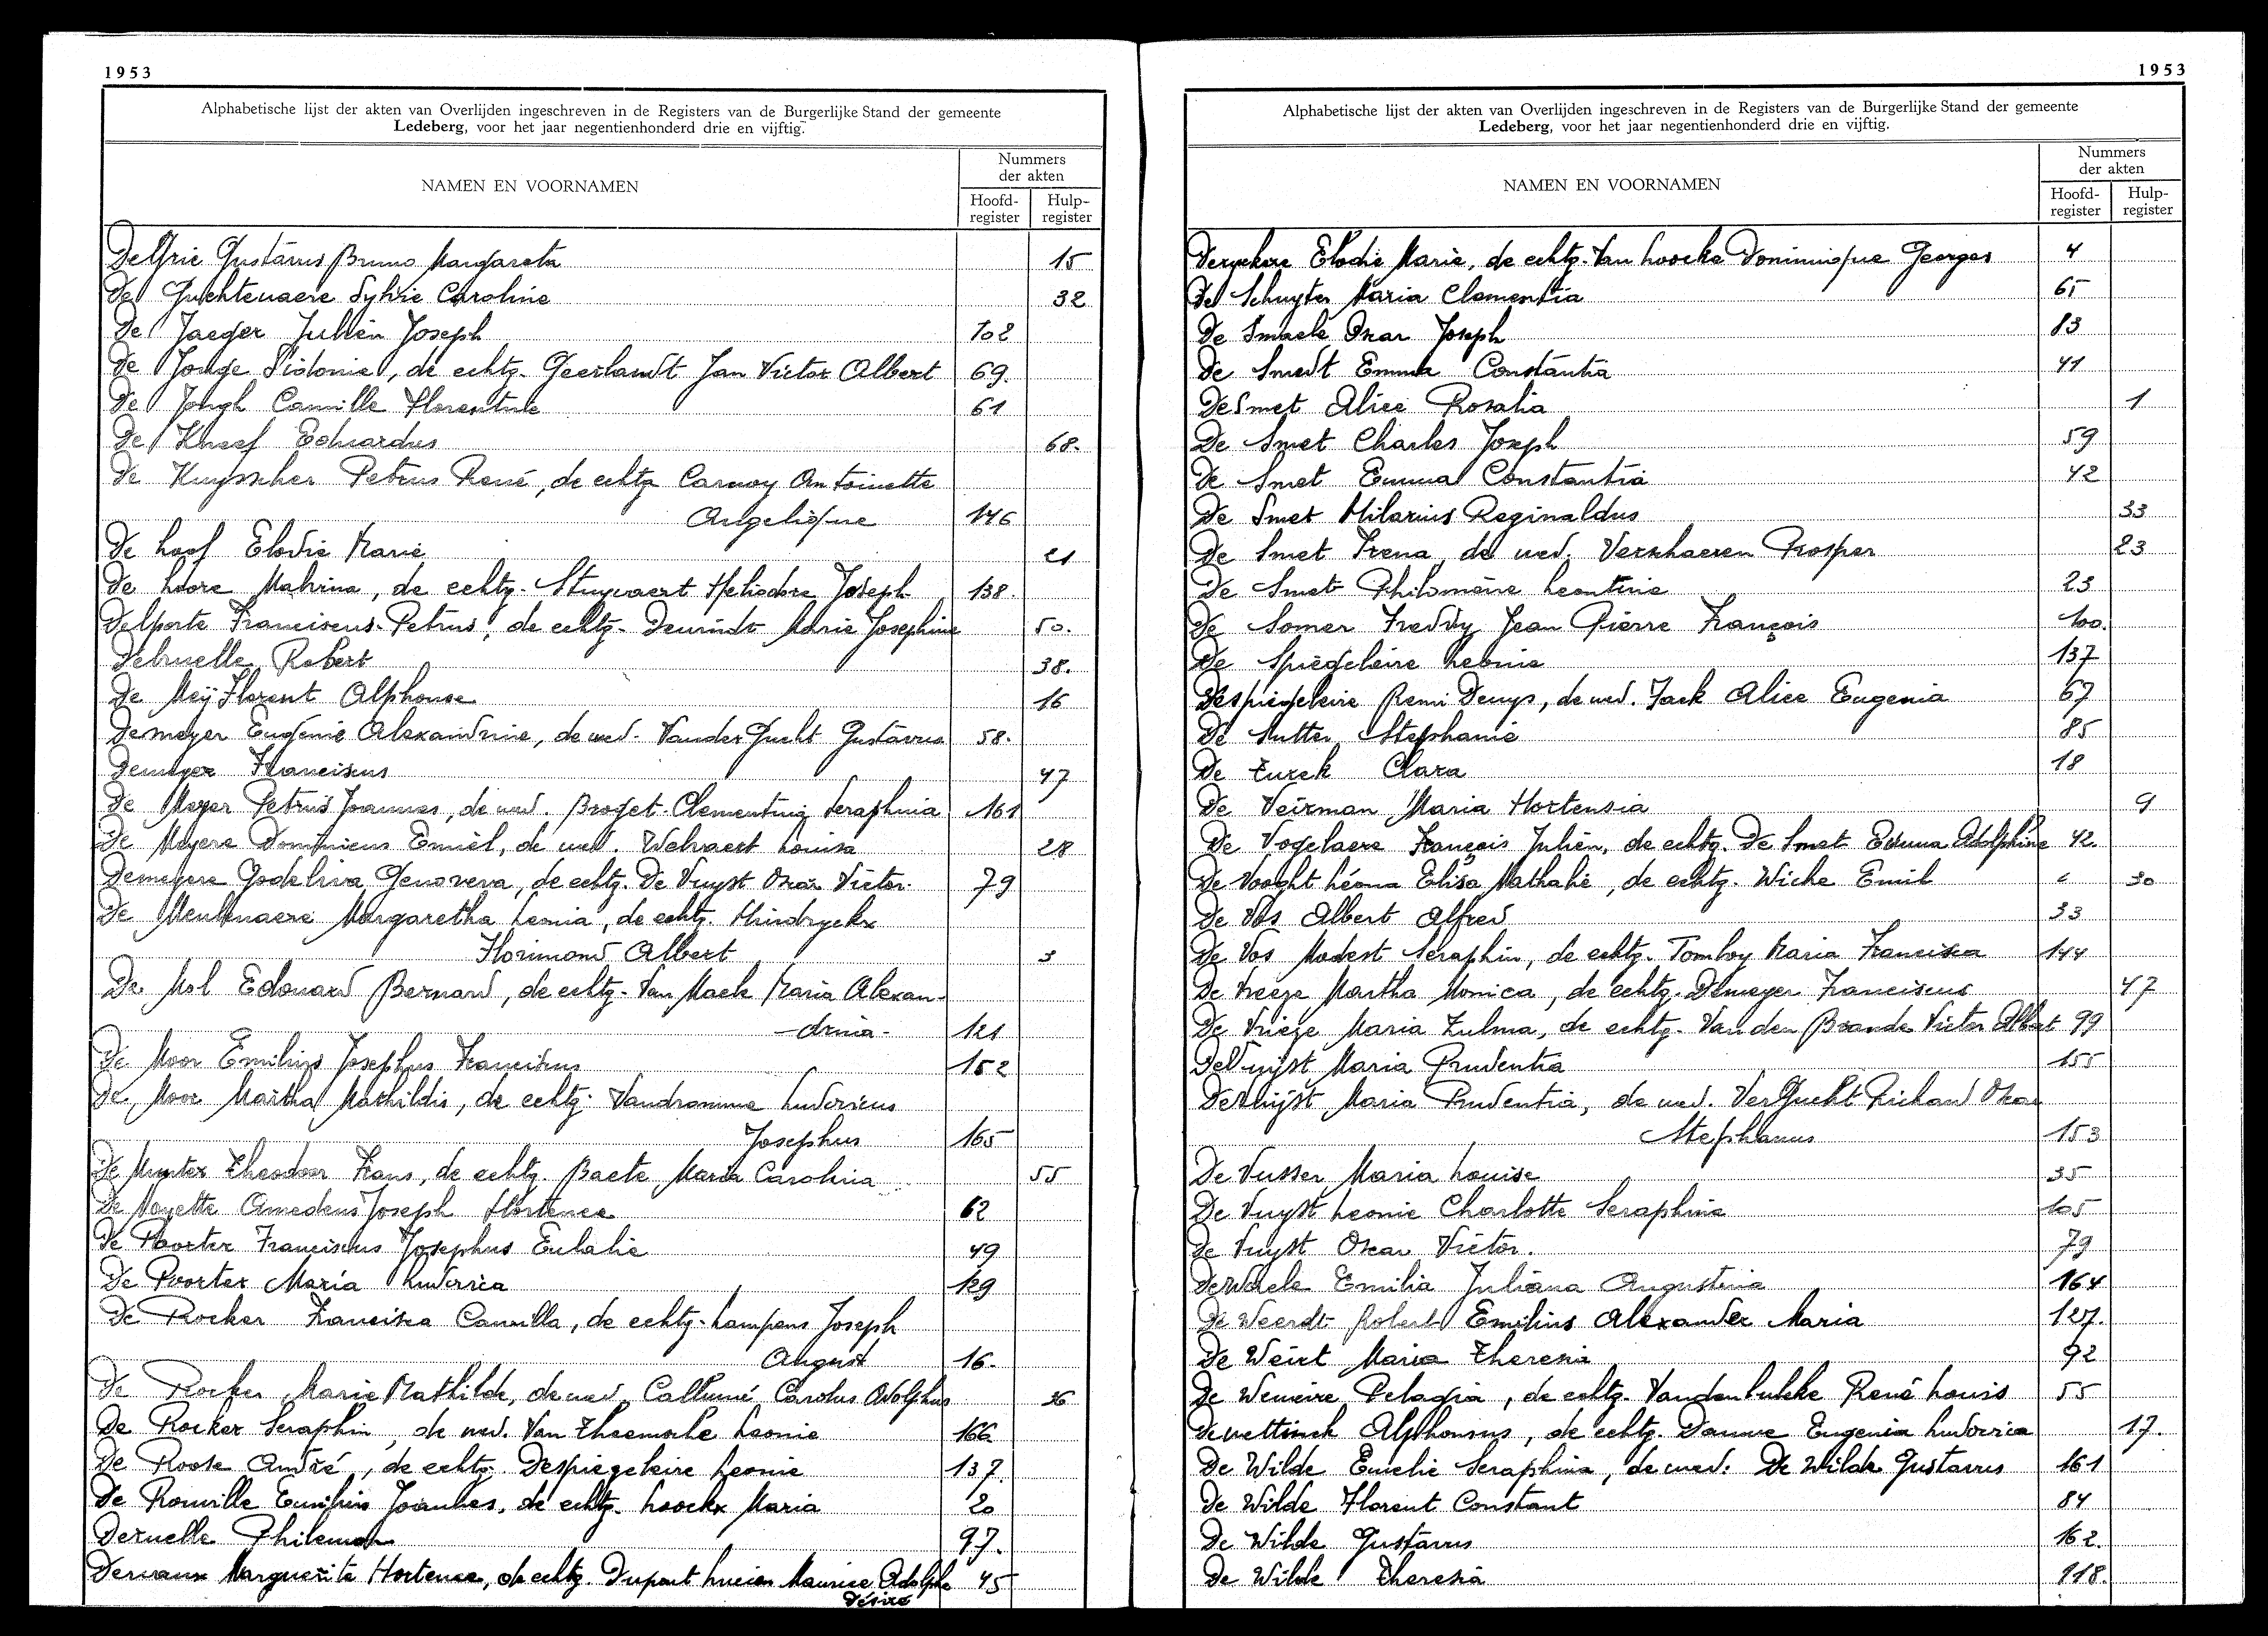 1953
Alphabetische lijst der akten van Overlijden ingeschreven in de Registers van de Burgerlijke Stand der gemeente
Ledeberg, voor het jaar negentienhonderd drie en vijftig.
NAMEN EN VOORNAMEN
Nummers
der akten
Hoofd-
register
Hulp-
register
Gustavus Bruno Margareta 15
De Guchtenaere Sylvie Caroline 32
De Jaeger Julien Joseph 102
De Jonge Sidonie, de echtg. Geerlandt Jan Victor Albert 69.
De Jongh Camille Florentine 61
De Kneef Eduardus 68.
De Kuysscher Petrus René, de echtg. Carnoy Antoinette
Angelique 146
De Loof Elodie Marie 21
De Loore Malvina, de echtg. Stuyvaert Heliodore Joseph 138.
Delporte Franciscus Petrus, de echtg. Deurindt Marie Josephine 50.
Robert 38.
De Meÿ Florent Alphonse 16
Demeyer Eugenie Alexandrine, de wed. Vander Gucht Gustavus 58.
Demeyer Franciscus 47
De Meyer Petrus Joannes, de wed. Clementina Seraphina 161
De Meyere Dominicus Emiel, de wed. Welvaert Louisa 28
Demeyere Godelieva Genoveva, de echtg. De Vuyst Oscar Victor. 79
De Meulenaere Margaretha Leonia, de echtg. Hindryckx
Florimond Albert 3
De Mol Edouard Bernard, de echtg. Van Maele Maria Alexan-
-drina- 121
De Moor Emilius Josephus Franciscus 152
De Moor Martha Mathildis, de echtg. Vandramme Ludovicus
Josephus 165
De Munter Theodoor Frans, de echtg. Baete Maria Carolina 55
De Noyette Amedeus Joseph Hortence 62
De Poorter Franciscus Josephus Eulalie 49
De Poorter Maria Ludovica 129
De Rocker Francisca Camilla, de echtg. Lampens Joseph
August 16.
De Rocker Marie Mathilde, de wed. Carolus Adolphus 26
De Rocker Seraphin, de wed. Van Theemsche Leonie 166
De Roose André, de echtg. Despiegeleire Leonie 137.
De Rouville Emilius Joannes, de echtg. Loockx Maria 20
Deruelle Philemon 97.
Dervaux Marguerite Hortence, de echtg. Dupont Lucien Maurice Adolphe 45
Désiré
1953
Alphabetische lijst der akten van Overlijden ingeschreven in de Registers van de Burgerlijke Stand der gemeente
Ledeberg, voor het jaar negentienhonderd drie en vijftig.
NAMEN EN VOORNAMEN
Nummers
der akten
Hoofd-
register
Hulp-
register
Deryckere Elodie Marie, de echtg. Van Loocke Dominique Georges 4
De Schuyter Maria Clementia 65
De Smaele Oscar Joseph 83
De Smedt Emma Constantia 41
De Smet Alice Rosalia 1
De Smet Charles Joseph 59
De Smet Emma Constantia 42
De Smet Hilarius Reginaldus 33
De Smet Irena, de wed. Verxhaeren Prosper 23
De Smet Philomène Leontine 23
De Somer Freddy Jean Pierre François 100.
De Spiegeleire Leonie 137
Despiegeleire Remi Denys, de wed. Jack Alice Eugenia 67
De Sutter Stephanie 85
De Turck Clara 18
De Veirman Maria Hortensia 9
De Vogelaere François Julien, de echtg. De Smet Adolphine 42.
De Vooght Léona Elisa Nathalie, de echtg. Wicke Emil 30
De Vos Albert Alfred 33
De Vos Modest Seraphin, de echtg. Tomboy Maria Francisca 144
De Vreeze Martha Monica, de echtg. Demeyer Franciscus 47
De Vrieze Maria Zulma, de echtg. Van den Brande Victor Albert 99
De Vuÿst Maria Prudentia 155
De Vuÿst Maria Prudentia, de wed. Ver Gucht Richard Oscar
Stephanus 153
De Vusser Maria Louise 35
De Vuyst Leonie Charlotte Seraphine 105
De Vuyst Oscar Victor. 79
Dewaele Emilia Juliana Augustina 164
De Weerdt Robert Emilius Alexander Maria 127.
De Weirt Maria Theresia 92
De Wemeire Pelagia, de echtg. Vandenbulcke René Louis 55
Dewettinck Alphonsus, de echtg. Damme Eugenia Ludovica 17.
De Wilde Emelie Seraphina, de wed. De Wilde Gustavus 161
De Wilde Florent Constant 84
De Wilde Gustavus 162.
De Wilde Theresia 118.